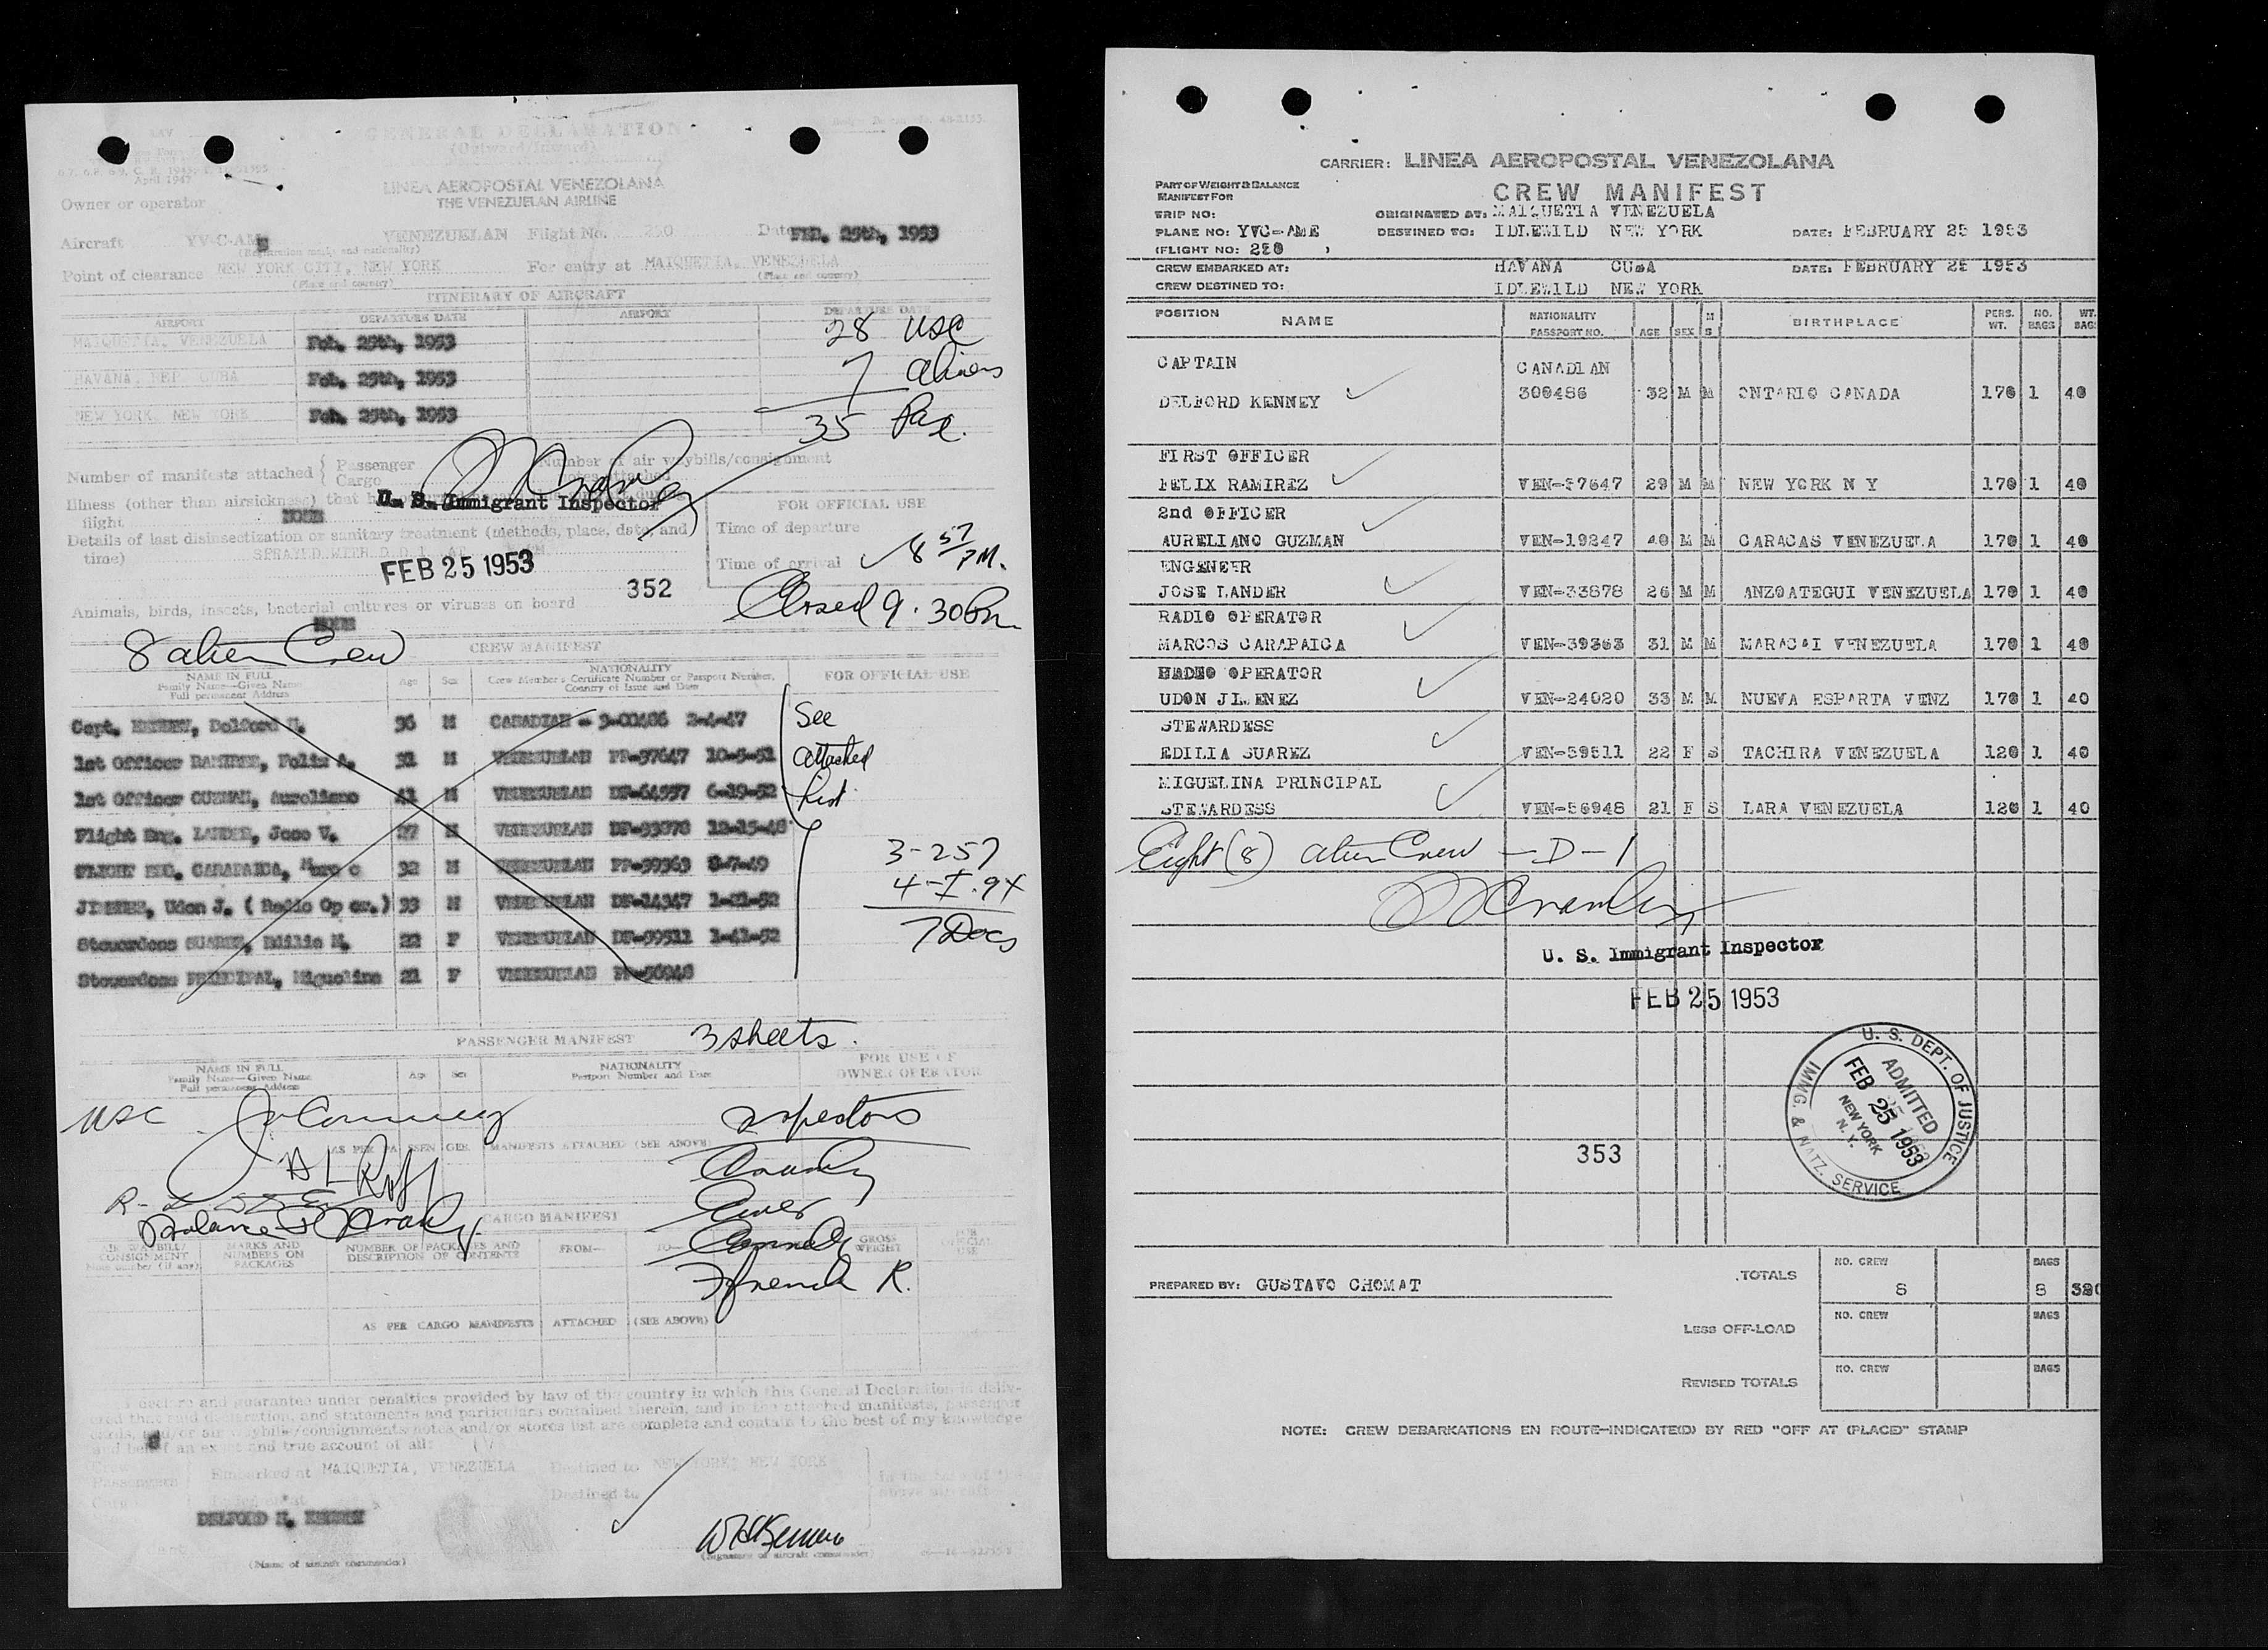 GENERAL DECLARATION
(Outward/Inward)
April 1947
LINEA AEROPOSTAL VENEZOLANA
THE VENEZUELAN AIRLINE
Owner or operator
Aircraft YV-C-AME VENEZUELAN Flight No. 250 Date FEB. 25th, 1953
(Registration marks and nationality)
Point of clearance NEW YORK CITY, NEW YORK For entry at MAIQUETIA, VENEZUELA
(Place and country) (Place and country)
ITINERARY OF AIRCRAFT
AIRPORT DEPARTURE DATE AIRPORT DEPARTURE DATE
MAIQUETIA, VENEZUELA Feb. 25th, 1953
HAVANA, REP. CUBA Feb. 25th, 1953
NEW YORK, NEW YORK Feb. 25th, 1953
28 USC
7 aliens
35 Pax.
Number of manifests attached { Passenger
Cargo
Number of air waybills/consignment
notes attached
Illness (other than airsickness) that
flight NONE
U. S. Immigrant Inspector
Details of last disinsectization or sanitary treatment (methods, place, date, and
time) SPRAYED WITH D D T
FOR OFFICIAL USE
Time of departure
Time of arrival 8 57 PM.
FEB 25 1953
352
Closed 9.30 Pm
Animals, birds, insects, bacterial cultures or viruses on board
NONE
8 alien Crew
CREW MANIFEST
NAME IN FULL
Family Name—Given Name
Full permanent Address
Age Sex
NATIONALITY
Crew Member's Certificate Number or Passport Number,
Country of Issue and Date
FOR OFFICIAL USE
Capt. KENNEY, Delford H. 36 M CANADIAN - 3-00486 2-4-47
1st Officer RAMIREZ, Felix A. 31 M VENEZUELAN PP-37647 10-5-51
1st Officer GUZMAN, Aureliano 41 M VENEZUELAN DP-64597 6-19-52
Flight Eng. LANDER, Jose V. 27 M VENEZUELAN DP-33878 12-15-48
FLIGHT ENG. CARAPAICA, Marco 32 M VENEZUELAN PP-39363 8-7-49
JIMENEZ, Udon J. (Radio Oper.) 33 M VENEZUELAN DP-14347 1-21-52
Stewardess SUAREZ, Edilia M. 22 F VENEZUELAN DP-59511 1-41-52
Stewardess PRINCIPAL, Miguelina 21 F VENEZUELAN PP-56948
See
attached
list
3-257
4-I.94
7 Docs
PASSENGER MANIFEST 3 sheets.
NAME IN FULL
Family Name—Given Name
Full permanent Address
Age Sex
NATIONALITY
Passport Number and Date
FOR USE OF
OWNER OPERATOR
USC
Inspectors
AS PER PASSENGER MANIFESTS ATTACHED (SEE ABOVE)
French R.
CARGO MANIFEST
AIR WAYBILL/
CONSIGNMENT
Note number (if any)
MARKS AND
NUMBERS ON
PACKAGES
NUMBER OF PACKAGES AND
DESCRIPTION OF CONTENTS
FROM— TO—
GROSS
WEIGHT
FOR
OFFICIAL
USE
AS PER CARGO MANIFESTS ATTACHED (SEE ABOVE)
I declare and guarantee under penalties provided by law of the country in which this General Declaration is deliv-
ered that said declaration, and statements and particulars contained therein, and in the attached manifests, passenger
cards, and/or air waybills/consignments notes and/or stores list are complete and contain to the best of my knowledge
and belief an exact and true account of all:
Passengers Embarked at MAIQUETIA, VENEZUELA Destined to NEW YORK, NEW YORK
Cargo Destined to
In the case of the
above aircraft
DELFORD H. KENNEY
(Name of aircraft commander)
(Signature of aircraft commander)
CARRIER: LINEA AEROPOSTAL VENEZOLANA
PART OF WEIGHT & BALANCE
MANIFEST FOR
CREW MANIFEST
TRIP NO: ORIGINATED AT: MAIQUETIA VENEZUELA
PLANE NO: YVC-AME DESTINED TO: IDLEWILD NEW YORK DATE: FEBRUARY 25 1953
(FLIGHT NO: 250 )
CREW EMBARKED AT: HAVANA CUBA DATE: FEBRUARY 25 1953
CREW DESTINED TO: IDLEWILD NEW YORK
POSITION NAME NATIONALITY PASSPORT NO. AGE SEX M S BIRTHPLACE PERS. WT. NO. BAGS WT. BAGS
CAPTAIN CANADIAN
DELFORD KENNEY 300486 32 M M ONTARIO CANADA 170 1 40
FIRST OFFICER
FELIX RAMIREZ VEN-37647 29 M M NEW YORK N Y 170 1 40
2nd OFFICER
AURELIANO GUZMAN VEN-19247 40 M M CARACAS VENEZUELA 170 1 40
ENGENEER
JOSE LANDER VEN-33878 26 M M ANZOATEGUI VENEZUELA 170 1 40
RADIO OPERATOR
MARCOS CARAPAICA VEN-39363 31 M M MARACAI VENEZUELA 170 1 40
RADIO OPERATOR
UDON JIMENEZ VEN-24020 33 M M NUEVA ESPARTA VENZ 170 1 40
STEWARDESS
EDILIA SUAREZ VEN-59511 22 F S TACHIRA VENEZUELA 120 1 40
MIGUELINA PRINCIPAL
STEWARDESS VEN-56948 21 F S LARA VENEZUELA 120 1 40
Eight (8) alien Crew - D - 1
U. S. Immigrant Inspector
FEB 25 1953
U. S. DEPT. OF JUSTICE
ADMITTED
FEB 25 1953
NEW YORK
N. Y.
IMMG. & NATZ. SERVICE
353
PREPARED BY: GUSTAVO CHOMAT
TOTALS NO. CREW 8 BAGS 8 320
LESS OFF-LOAD NO. CREW BAGS
REVISED TOTALS NO. CREW BAGS
NOTE: CREW DEBARKATIONS EN ROUTE—INDICATE(D) BY RED "OFF AT (PLACE)" STAMP